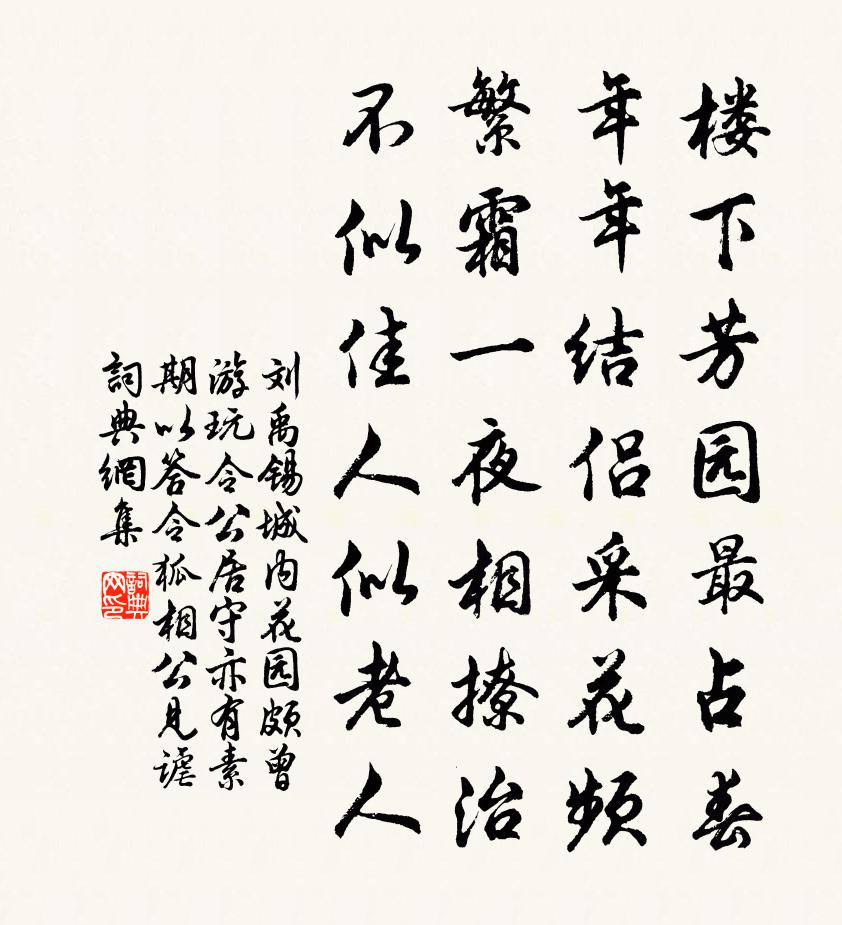 楼下芳园最占春
年年结侣采花频
繁霜一夜相撩治
不似佳人似老人
刘禹锡城内花园颇曾
游玩令公居守亦有素
期以答令狐相公见谑
詞典網集
詞典
网印